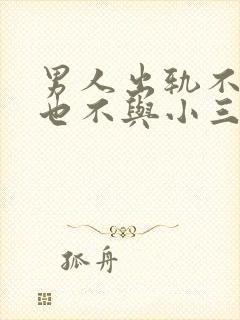 男人出轨不
也不與小三
孤舟